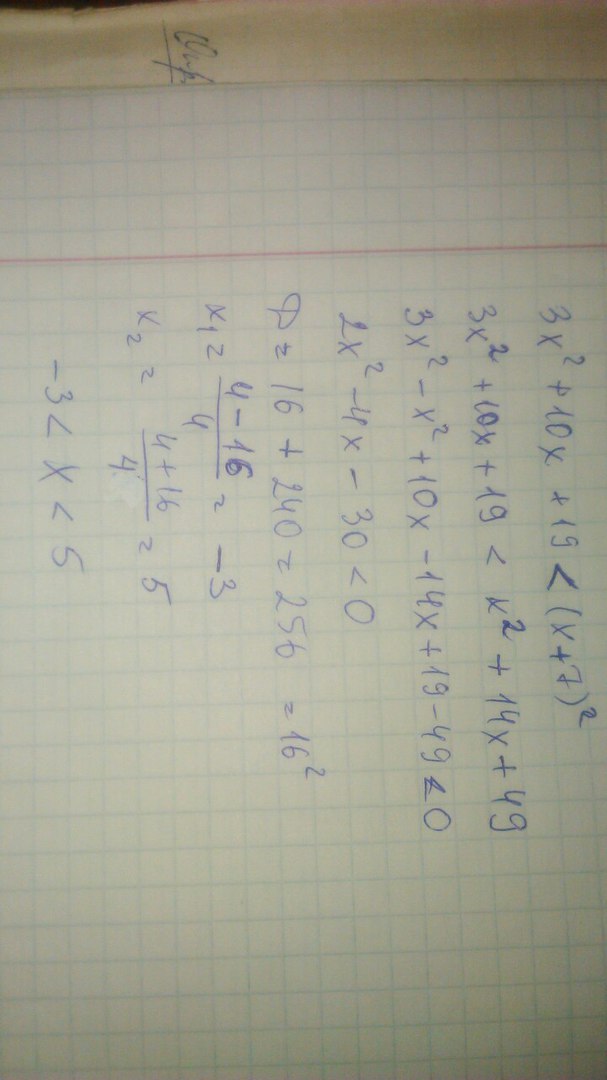 3x² + 10x + 19 < (x+7)²
3x² + 10x + 19 < x² + 14x + 49
3x² - x² + 10x - 14x + 19 - 49 < 0
2x² - 4x - 30 < 0
D = 16 + 240 = 256 = 16²
x₁ = (4-16)/4 = -3
x₂ = (4+16)/4 = 5
-3 < x < 5